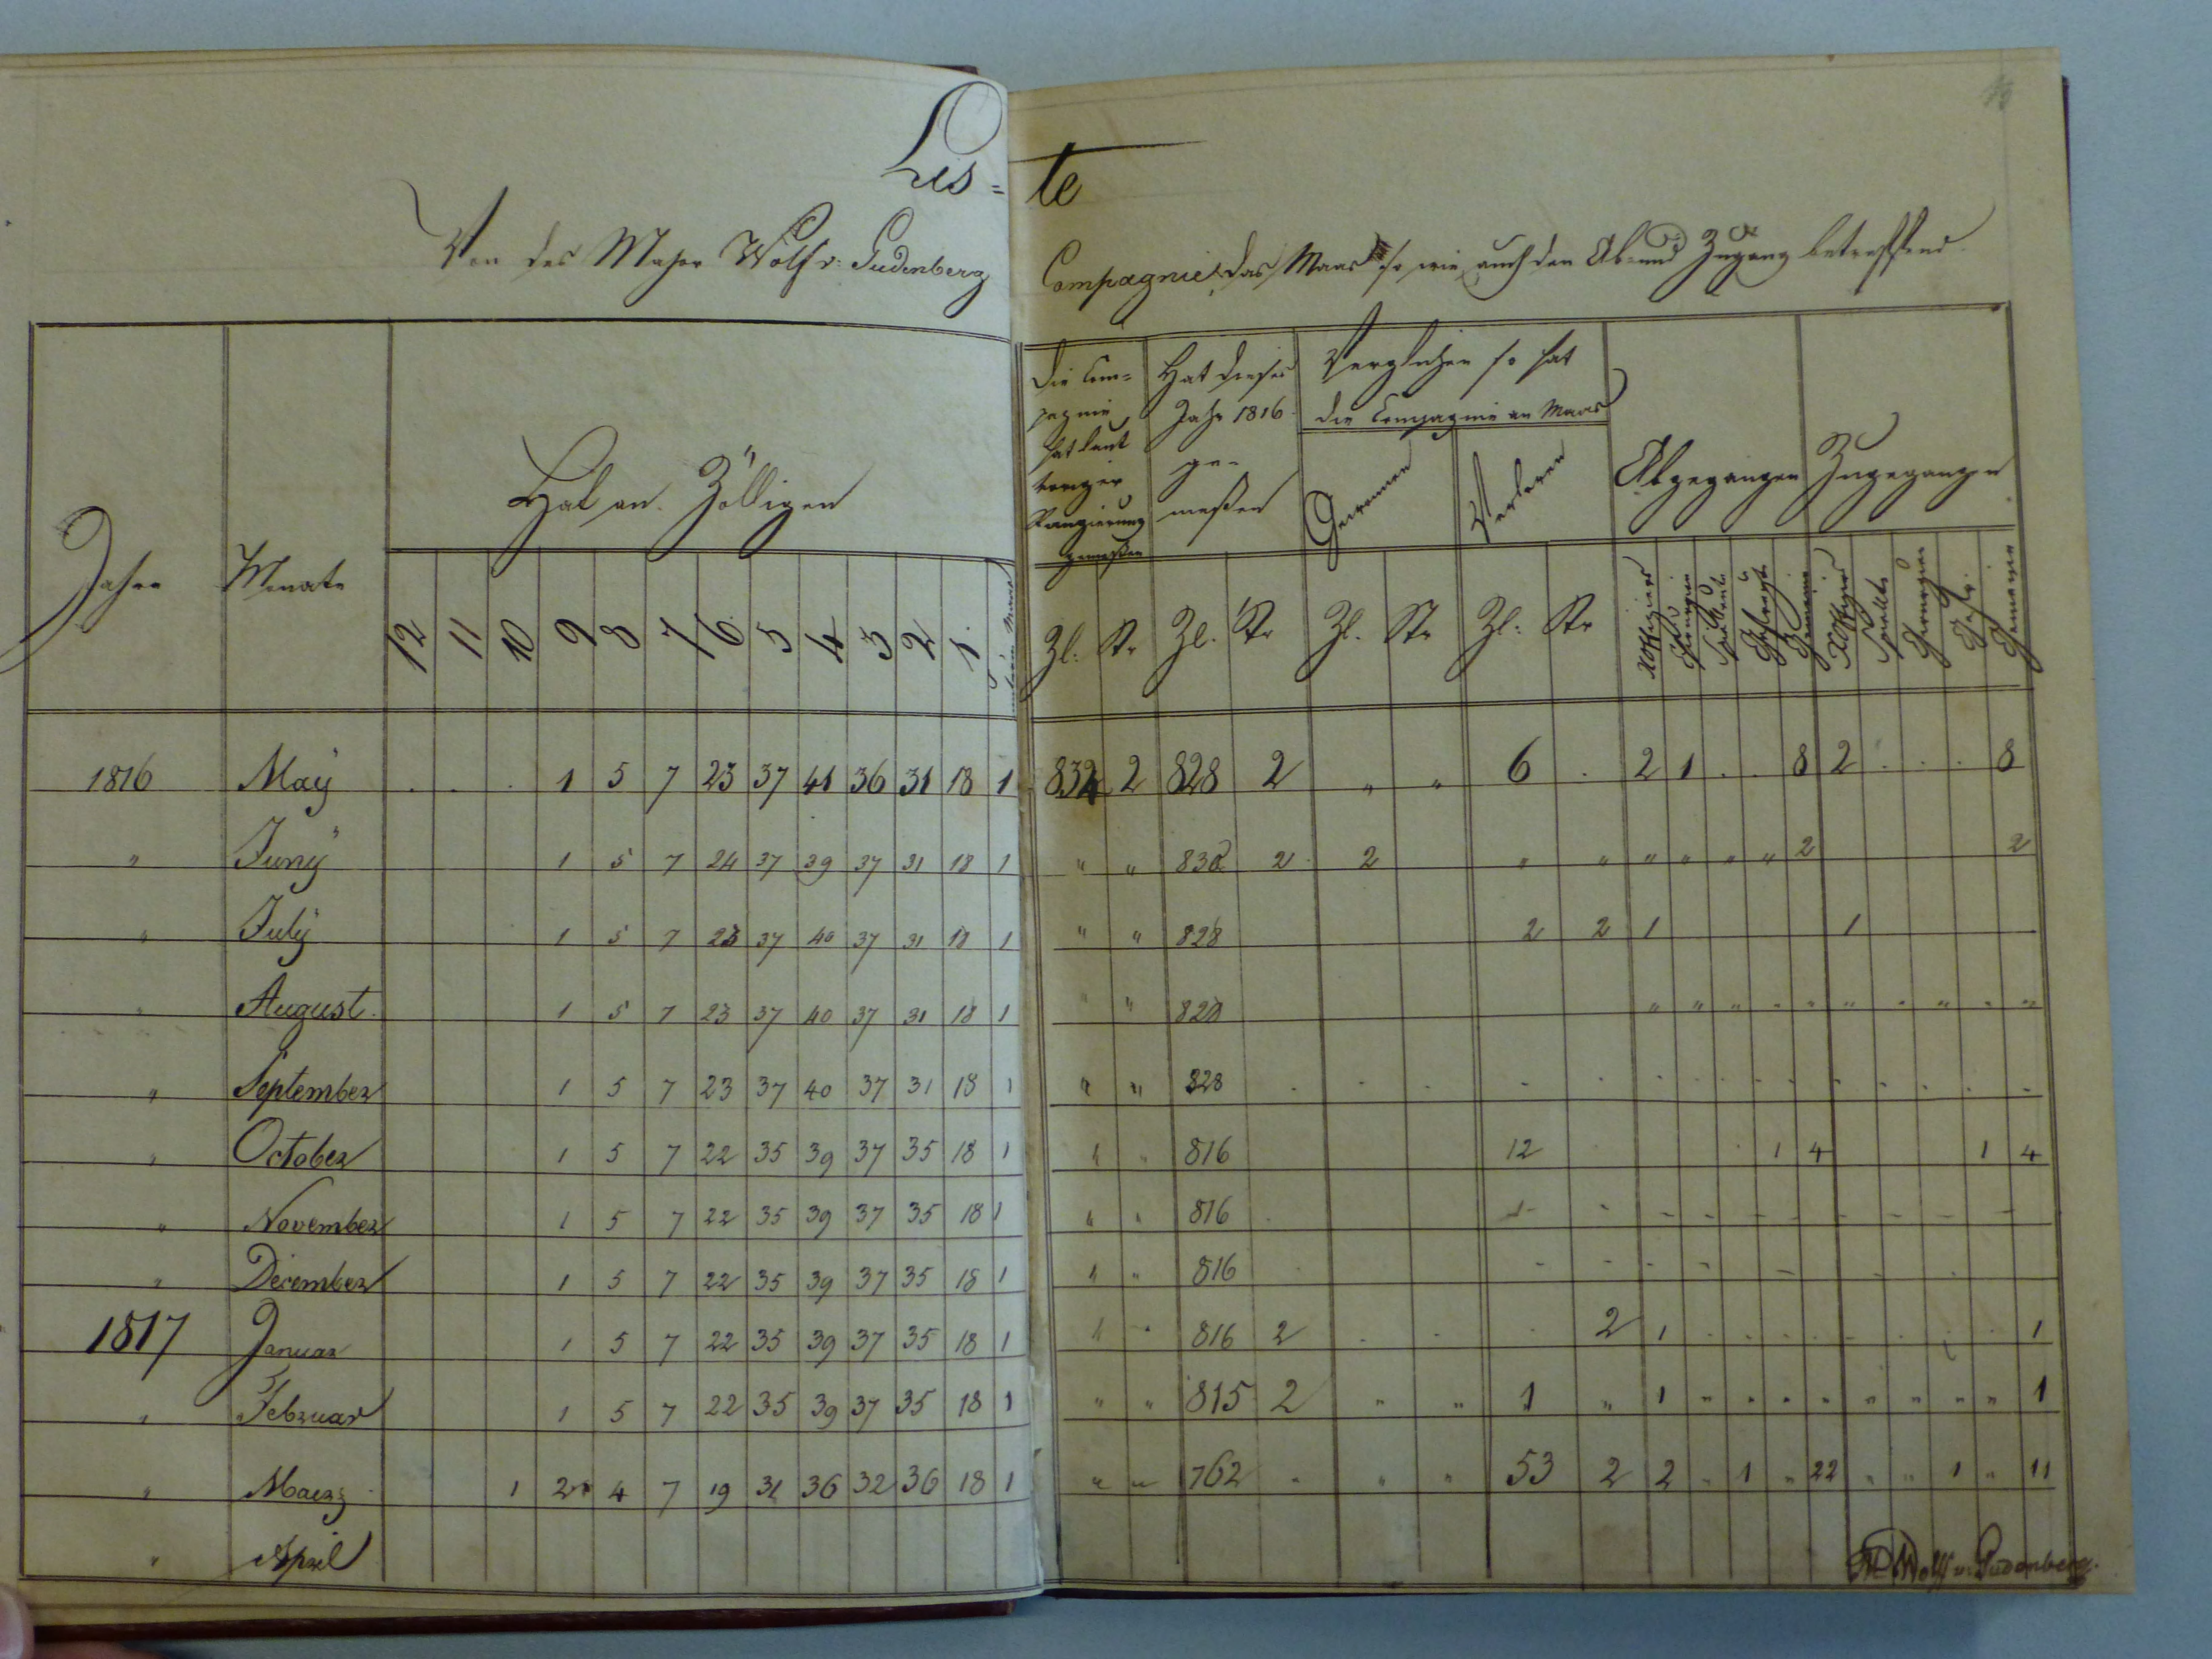 Lis=te
Von des Major Wolf v: Gudenberg Compagnie, das Maas so wie auch den Ab- und Zugang betreffend
Jahre Monate Hat an Zölligen Die Com=pagnie hat laut voriger Rangierung gemeßen Hat dieses Jahr 1816 ge-meßen Verglichen so hat die Compagnie an Maas Gewonnen Verloren Abgegangen Zugegangen
12 11 10 9 8 7 6 5 4 3 2 1 Zl: Str Zl. Str Zl. Str Zl: Str Gemeine Gemeine
1816 May . . . 1 5 7 23 37 41 36 31 18 1 834 2 828 2 " " 6 . 2 1 . . 8 2 . . . 8
" Juny 1 5 7 24 37 39 37 31 18 1 " " 830 2 2 " " " " " " 2 2
" July 1 5 7 23 37 40 37 31 18 1 " " 828 2 2 1 1
" August. 1 5 7 23 37 40 37 31 18 1 " " 828 " " " " " " " " " "
" September 1 5 7 23 37 40 37 31 18 1 " " 828 . . . . . . . . . . . . . . .
" October 1 5 7 22 35 39 37 35 18 1 " " 816 12 1 4 1 4
" November 1 5 7 22 35 39 37 35 18 1 " " 816
" December 1 5 7 22 35 39 37 35 18 1 " " 816
1817 Januar 1 5 7 22 35 39 37 35 18 1 " " 816 2 . . . 2 1 . . . . . . . . 1
" Februar 1 5 7 22 35 39 37 35 18 1 " " 815 2 " " 1 " 1 " " " " " " " " 1
" Maerz 1 2 4 7 19 31 36 32 36 18 1 " " 762 " " " 53 2 2 " 1 " 22 " " 1 " 11
" April
Wolff v: Gudenberg.